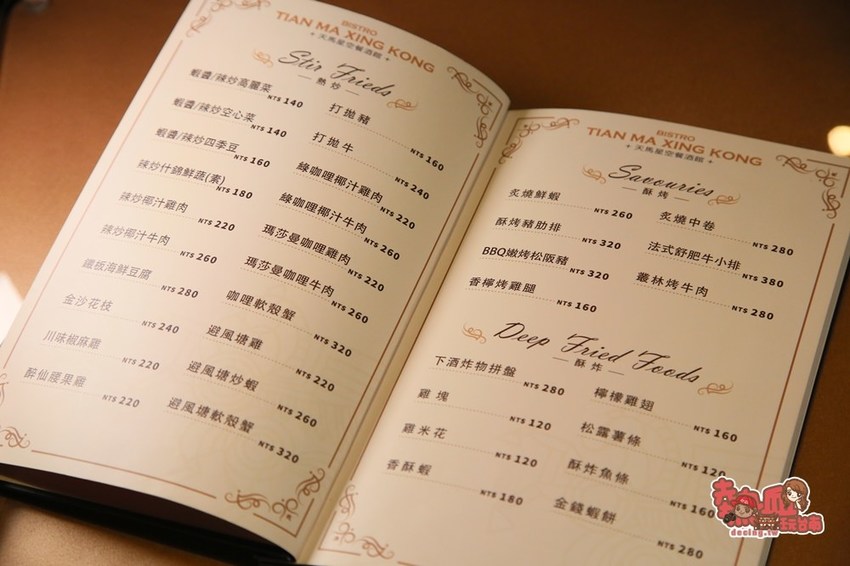 BISTRO
TIAN MA XING KONG
天馬星空餐酒館
Stir Frieds
熱炒
蝦醬/辣炒高麗菜 NT$ 140
蝦醬/辣炒空心菜 NT$ 140
蝦醬/辣炒四季豆 NT$ 160
辣炒什錦鮮蔬(素) NT$ 180
辣炒椰汁雞肉 NT$ 220
辣炒椰汁牛肉 NT$ 260
鐵板海鮮豆腐 NT$ 280
金沙花枝 NT$ 240
川味椒麻雞 NT$ 220
醉仙腰果雞 NT$ 220
打拋豬 NT$ 160
打拋牛 NT$ 240
綠咖哩椰汁雞肉 NT$ 220
綠咖哩椰汁牛肉 NT$ 260
瑪莎曼咖哩雞肉 NT$ 220
瑪莎曼咖哩牛肉 NT$ 260
咖哩軟殼蟹 NT$ 320
避風塘雞 NT$ 220
避風塘炒蝦 NT$ 260
避風塘軟殼蟹 NT$ 320
BISTRO
TIAN MA XING KONG
天馬星空餐酒館
Savouries
酥烤
炙燒鮮蝦 NT$ 260
酥烤豬肋排 NT$ 320
BBQ嫩烤松阪豬 NT$ 320
香檸烤雞腿 NT$ 160
炙燒中卷 NT$ 280
法式舒肥牛小排 NT$ 380
叢林烤牛肉 NT$ 280
Deep Fried Foods
酥炸
下酒炸物拼盤 NT$ 280
雞塊 NT$ 120
雞米花 NT$ 120
香酥蝦 NT$ 180
檸檬雞翅 NT$ 160
松露薯條 NT$ 120
酥炸魚條 NT$ 160
金錢蝦餅 NT$ 280
玩台南
decing.tw